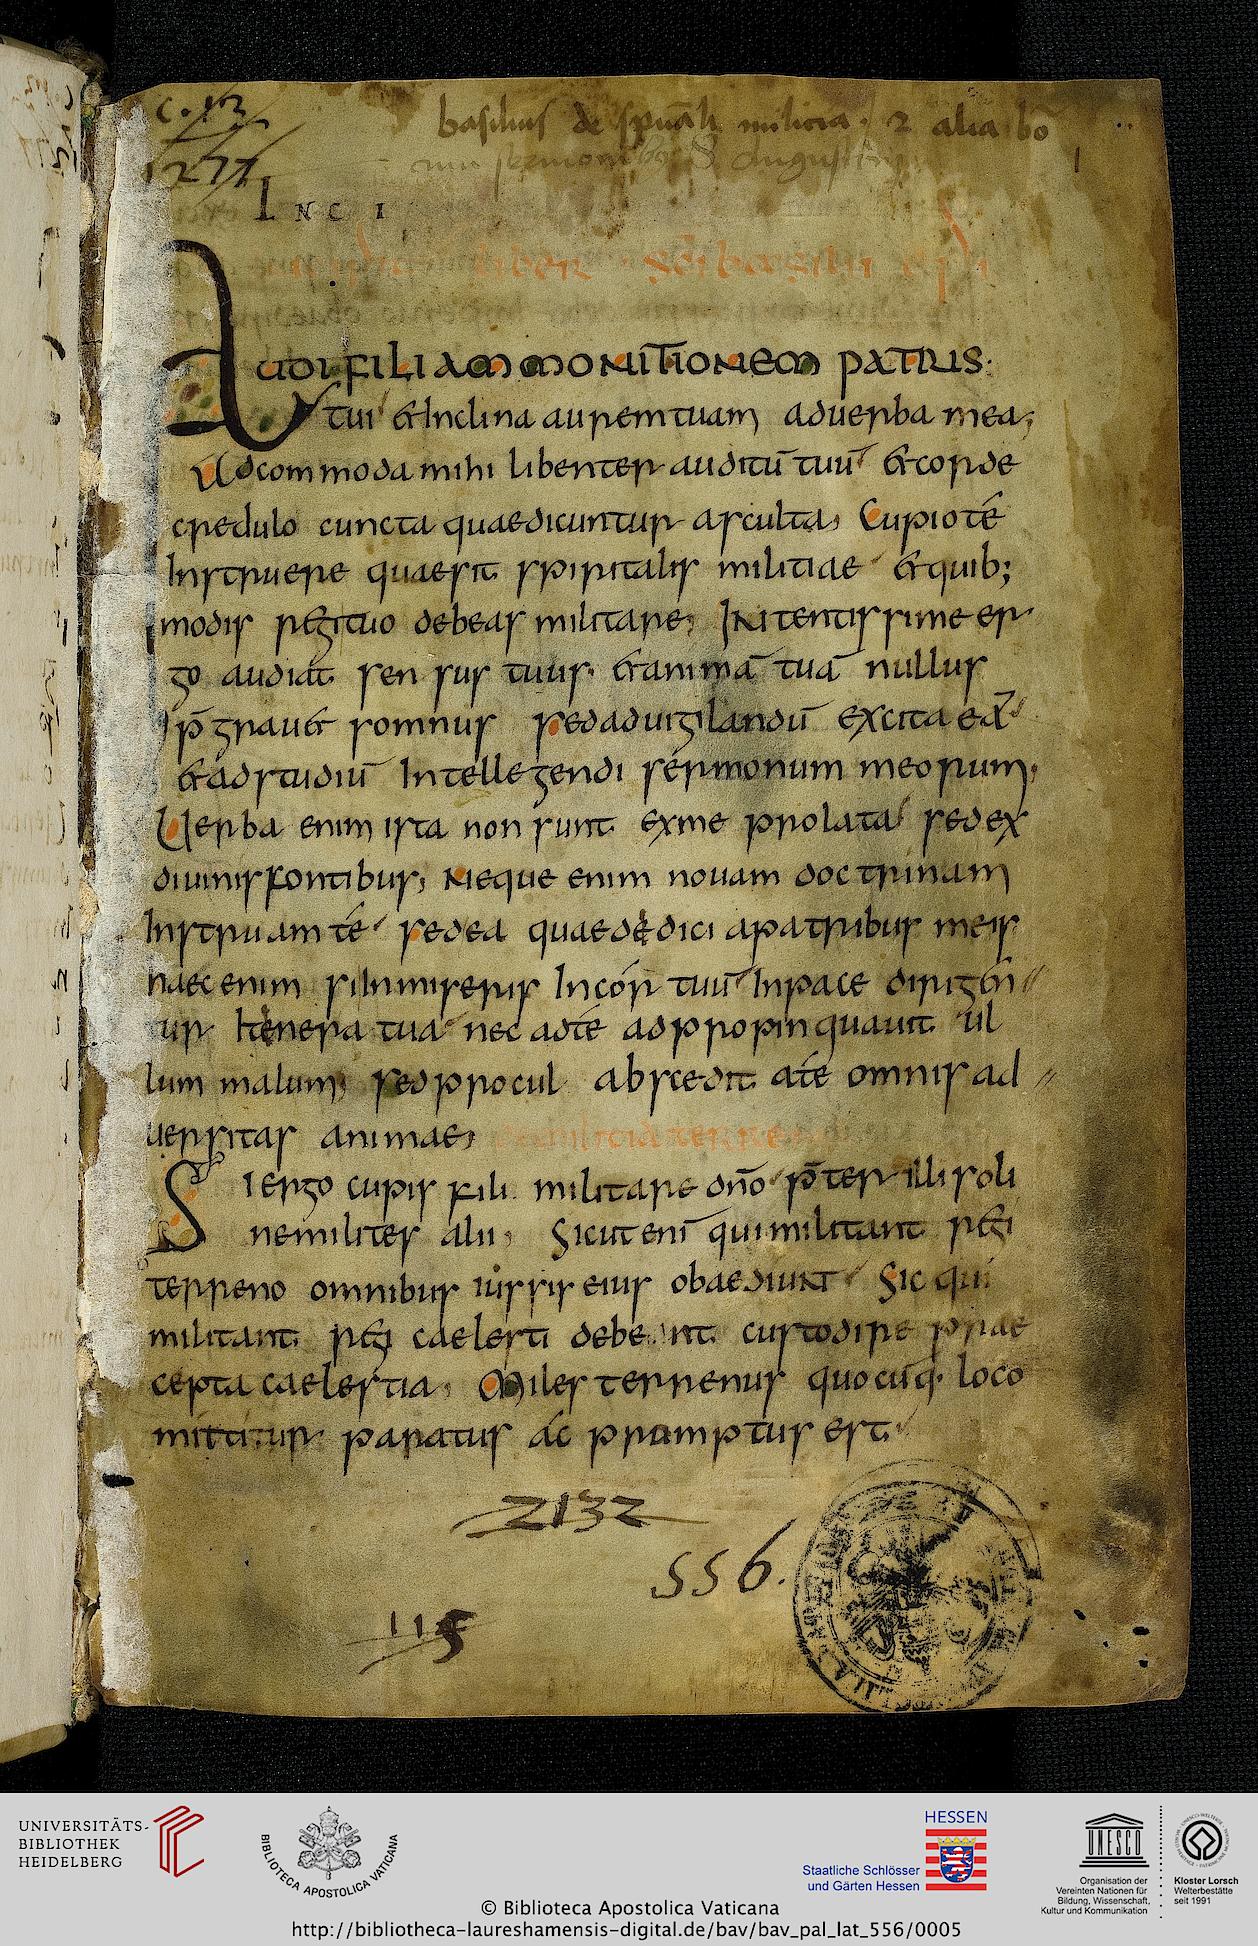 C. 13
basilius de sp̄uali militia. 2 alia bō
1277
1
INC I
liber sc̄i basilii ep̄i
AUDI FILI AMMONITIONEM PATRIS:
tui & Inclina aurem tuam aduerba mea;
Adcommoda mihi libenter auditū tuū & corde
credulo cuncta quaedicuntur asculta, Cupio té
Instruere quaesit spiritalis militiae & quib;
modis regi tuo debeas militare; INtentissime er
go audiat sensus tuus. & animā tuā nullus
p̄grauet somnus sedaduigilandū excita eā
& adstudiū Intellegendi sermonum meorum;
Uerba enim ista non sunt exme prolata sedex
diuinis fontibus, Neque enim nouam doctrinam
Instruam té sedea quaededici apatribus meis
haec enim si Inmiseris Incór tuū Inpace dirigen
tur Itenera tua nec adté adpropinquauit ul
lum malum, sed procul abscedit até omnis ad
uersitas animae,
militia terre
Si ergo cupis fili militare dn̄o p̄ter illi soli
nemilites alii, Sicut enī quimilitant regi
terreno omnibus iussis eius obaediunt Sic qui
militant regi caelesti debent custodire prae
cepta caelestia, Miles terrenus quocūq. loco
mittitur paratus ác prumptus est.
2132
556.
115
UNIVERSITÄTS-
BIBLIOTHEK
HEIDELBERG
BIBLIOTECA APOSTOLICA VATICANA
HESSEN
Staatliche Schlösser
und Gärten Hessen
UNESCO
Organisation der
Vereinten Nationen für
Bildung, Wissenschaft,
Kultur und Kommunikation
Kloster Lorsch
Welterbestätte
seit 1991
© Biblioteca Apostolica Vaticana
http://bibliotheca-laureshamensis-digital.de/bav/bav_pal_lat_556/0005